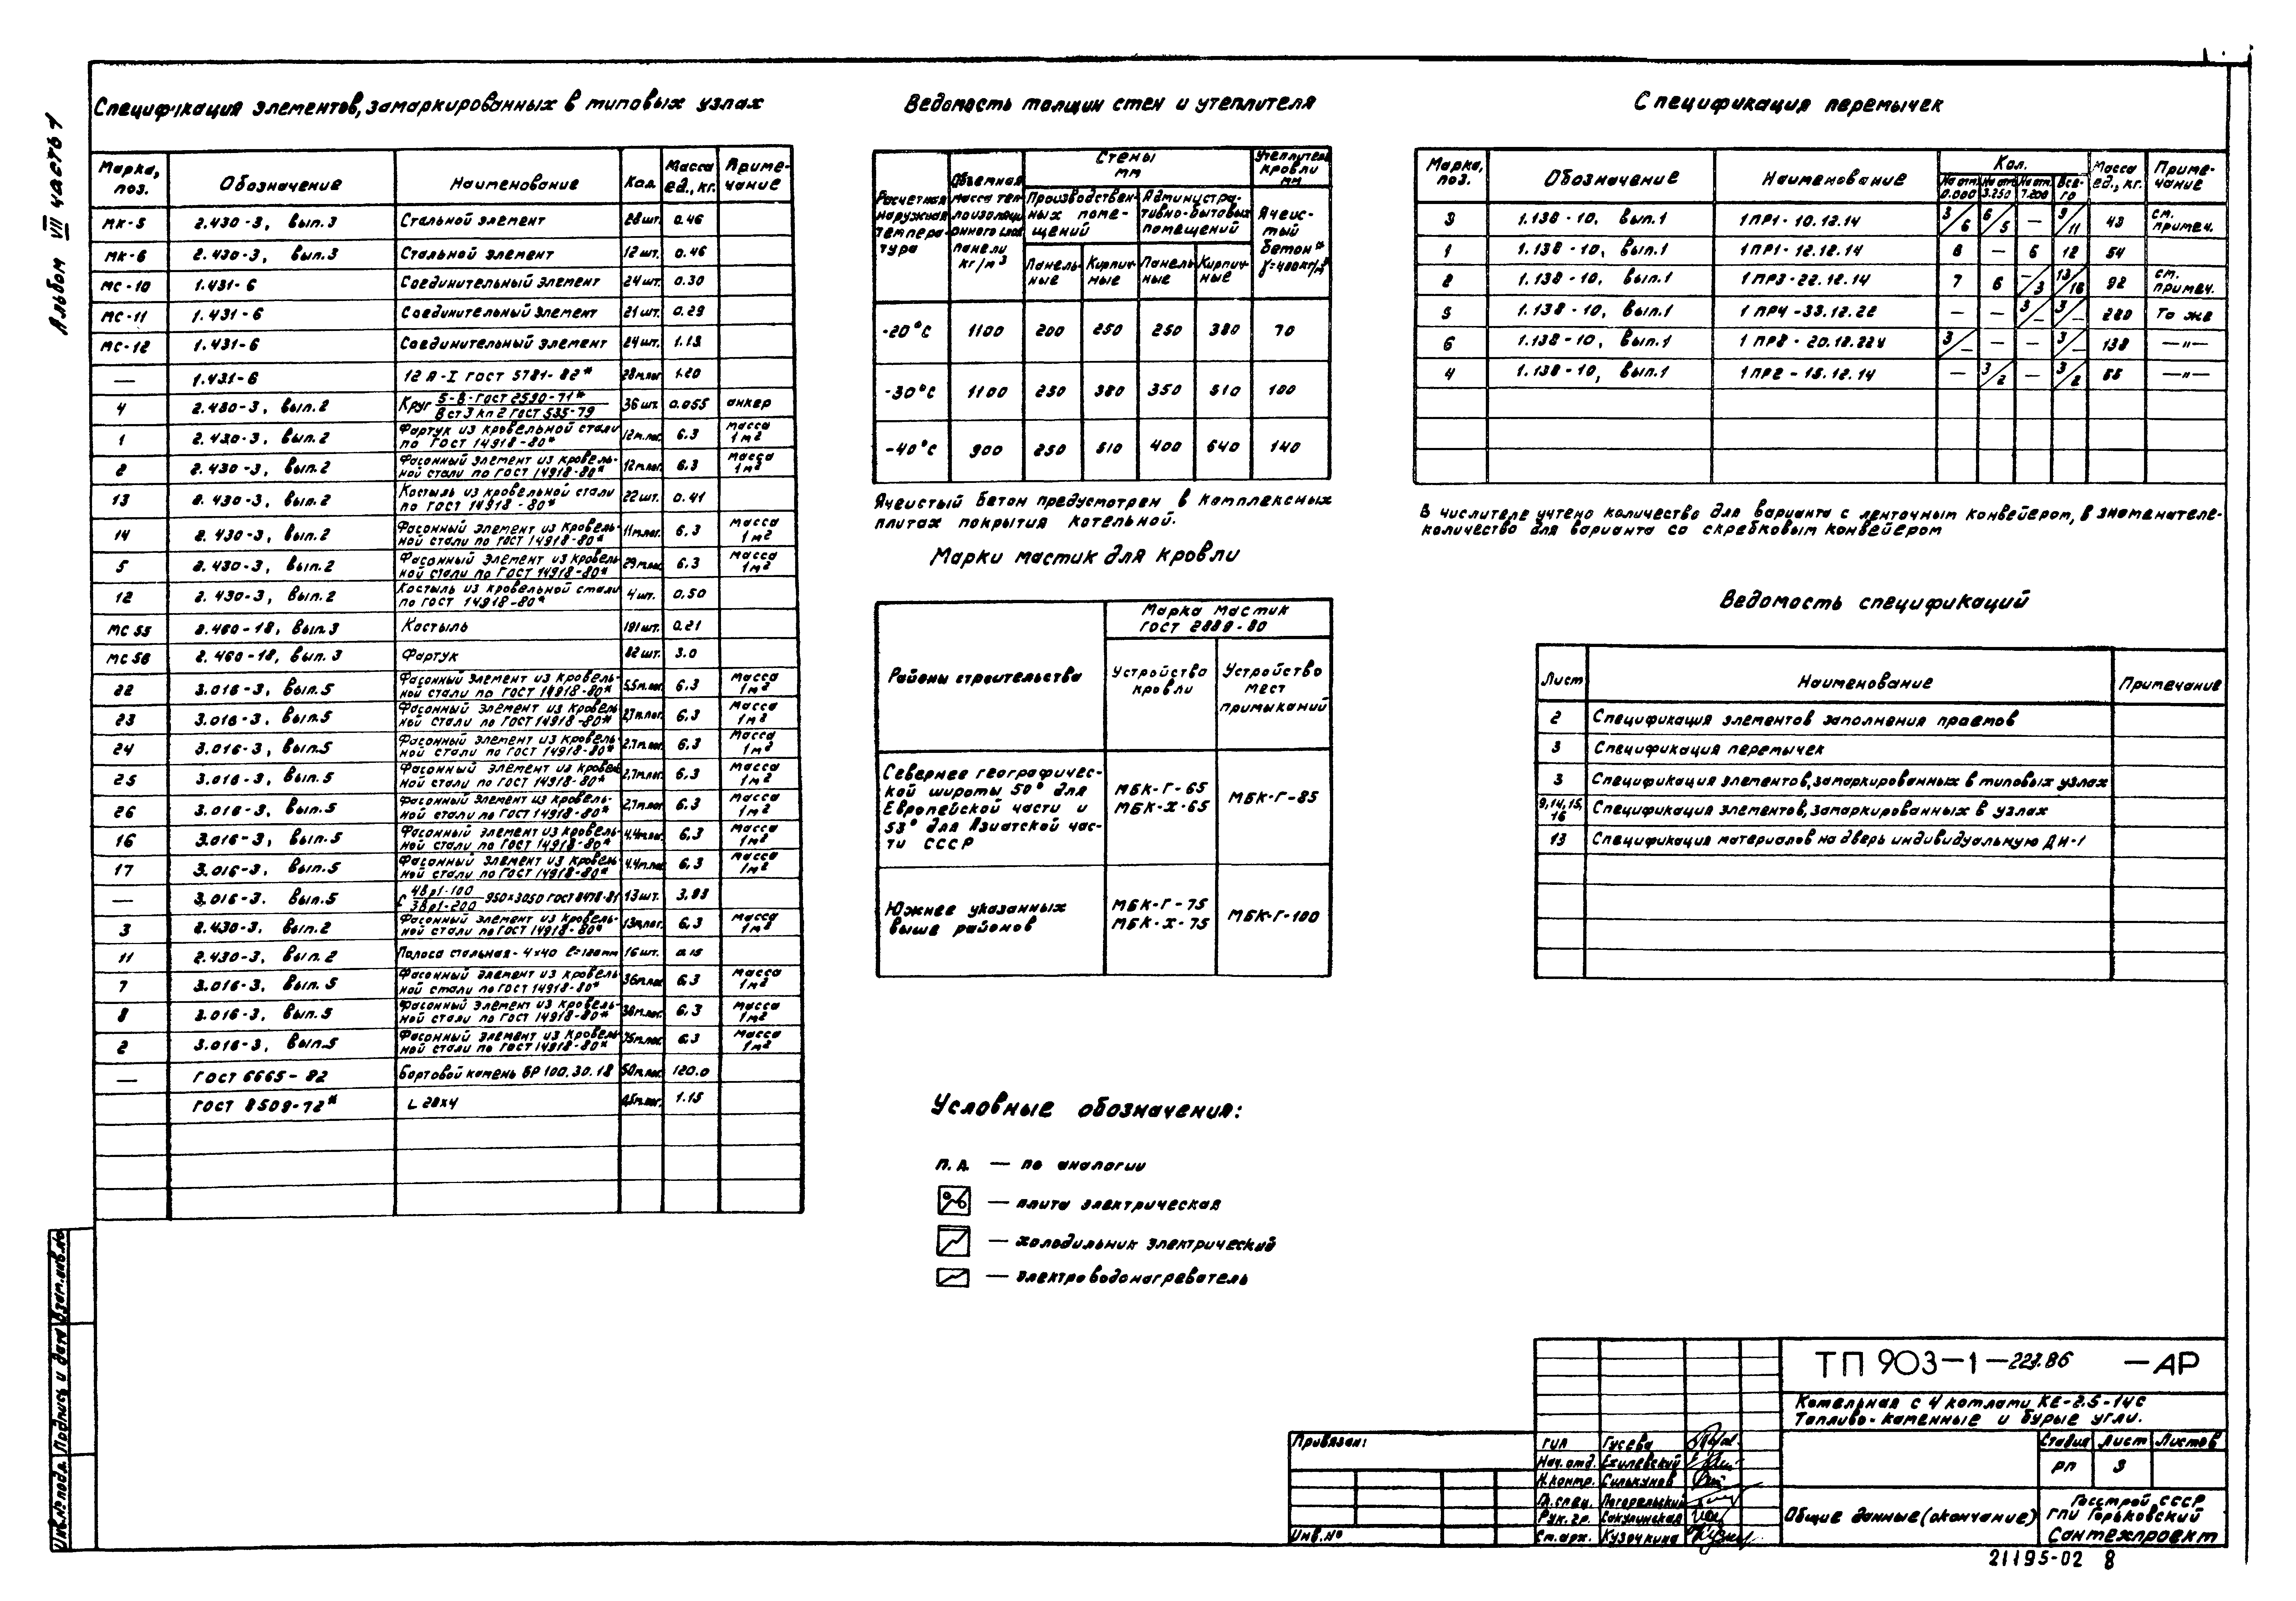 Альбом VII часть 1
Спецификация элементов, замаркированных в типовых узлах
Марка, поз. Обозначение Наименование Кол. Масса ед., кг. Примечание
МК-5 2.430-3, вып.3 Стальной элемент 28шт. 0.46
МК-6 2.430-3, вып.3 Стальной элемент 12шт. 0.46
МС-10 1.431-6 Соединительный элемент 24шт. 0.30
МС-11 1.431-6 Соединительный элемент 21шт. 0.29
МС-12 1.431-6 Соединительный элемент 24шт. 1.13
— 1.431-6 12 А-I ГОСТ 5781-82* 28м.пог. 1.20
4 2.430-3, вып.2 Круг 5-В-ГОСТ 2590-71* / Вст3 кп2 ГОСТ 535-79 36шт. 0.055 анкер
1 2.430-3, вып.2 Фартук из кровельной стали по ГОСТ 14918-80* 12м.пог. 6.3 Масса 1м²
2 2.430-3, вып.2 Фасонный элемент из кровельной стали по ГОСТ 14918-80* 12м.пог. 6.3 Масса 1м²
13 2.430-3, вып.2 Костыль из кровельной стали по ГОСТ 14918-80* 22шт. 0.41
14 2.430-3, вып.2 Фасонный элемент из кровельной стали по ГОСТ 14918-80* 11м.пог. 6.3 Масса 1м²
5 2.430-3, вып.2 Фасонный элемент из кровельной стали по ГОСТ 14918-80* 29м.пог. 6.3 Масса 1м²
12 2.430-3, вып.2 Костыль из кровельной стали по ГОСТ 14918-80* 4шт. 0.50
МС 55 2.460-18, вып.3 Костыль 191шт. 0.21
МС 56 2.460-18, вып.3 Фартук 82шт. 3.0
22 3.016-3, вып.5 Фасонный элемент из кровельной стали по ГОСТ 14918-80* 6.3 Масса 1м²
23 3.016-3, вып.5 Фасонный элемент из кровельной стали по ГОСТ 14918-80* 6.3 Масса 1м²
24 3.016-3, вып.5 Фасонный элемент из кровельной стали по ГОСТ 14918-80* 2.7м.пог. 6.3 Масса 1м²
25 3.016-3, вып.5 Фасонный элемент из кровельной стали по ГОСТ 14918-80* 2.7м.пог. 6.3 Масса 1м²
26 3.016-3, вып.5 Фасонный элемент из кровельной стали по ГОСТ 14918-80* 2.7м.пог. 6.3 Масса 1м²
16 3.016-3, вып.5 Фасонный элемент из кровельной стали по ГОСТ 14918-80* 4.4м.пог. 6.3 Масса 1м²
17 3.016-3, вып.5 Фасонный элемент из кровельной стали по ГОСТ 14918-80* 4.4м.пог. 6.3 Масса 1м²
— 3.016-3. вып.5 С 4Вр1-100 / 3Вр1-200 -950х3050 ГОСТ 8478-81 13шт. 3.83
3 2.430-3, вып.2 Фасонный элемент из кровельной стали по ГОСТ 14918-80* 13м.пог. 6.3 Масса 1м²
11 2.430-3, вып.2 Полоса стальная - 4х40 16шт. 0.15
7 3.016-3, вып.5 Фасонный элемент из кровельной стали по ГОСТ 14918-80* 36м.пог. 6.3 Масса 1м²
8 3.016-3, вып.5 Фасонный элемент из кровельной стали по ГОСТ 14918-80* 36м.пог. 6.3 Масса 1м²
2 3.016-3, вып.5 Фасонный элемент из кровельной стали по ГОСТ 14918-80* 6.3 Масса 1м²
— ГОСТ 6665-82 Бортовой камень БР 100.30.18 50м.пог. 120.0
ГОСТ 8509-72* L 28х4 1.15
Ведомость толщин стен и утеплителя
Расчетная наружная температура
Объемная масса теплоизоляционного слоя панели кг/м³
Стены мм
Утеплитель кровли мм
Производственных помещений
Административно-бытовых помещений
Ячеистый бетон* γ=400кг/м³
Панельные Кирпичные Панельные Кирпичные
-20°С 1100 200 250 250 380 70
-30°С 1100 250 380 350 510 100
-40°С 900 250 510 400 640 140
Ячеистый бетон предусмотрен в комплексных
плитах покрытия котельной.
Марки мастик для кровли
Районы строительства
Марка мастик
ГОСТ 2889-80
Устройство кровли
Устройство мест примыканий
Севернее географической широты 50° для Европейской части и 53° для Азиатской части СССР
МБК-Г-65
МБК-Х-65
МБК-Г-85
Южнее указанных выше районов
МБК-Г-75
МБК-Х-75
МБК-Г-100
Условные обозначения:
п.а. — по аналогии
— плита электрическая
— холодильник электрический
— электроводонагреватель
Спецификация перемычек
Марка, поз. Обозначение Наименование Кол. Масса ед., кг. Примечание
На отм. 0.000 На отм. 3.250 На отм. 7.200 Всего
3 1.138-10, вып.1 1ПР1-10.12.14 3/6 6/5 — 9/11 43 см. примеч.
1 1.138-10, вып.1 1ПР1-12.12.14 6 — 6 12 54
2 1.138-10, вып.1 1ПР3-22.12.14 7 6 -/3 13/16 92 см. примеч.
5 1.138-10, вып.1 1ПР4-33.12.22 — — 3/- 3/- 220 То же
6 1.138-10, вып.1 1ПР8-20.12.22у 3/- — — 3/- 138 —"—
4 1.138-10, вып.1 1ПР2-15.12.14 — 3/2 — 3/2 65 —"—
В числителе учтено количество для варианта с ленточным конвейером, в знаменателе-
количество для варианта со скребковым конвейером
Ведомость спецификаций
Лист Наименование Примечание
2 Спецификация элементов заполнения проемов
3 Спецификация перемычек
3 Спецификация элементов, замаркированных в типовых узлах
9,14,15,16 Спецификация элементов, замаркированных в узлах
13 Спецификация материалов на дверь индивидуальную ДН-1
ТП 903-1-227.86 -АР
Котельная с 4 котлами КЕ-2.5-14С
Топливо-каменные и бурые угли.
Привязан:
Инв.№
ГИП Гусева
Нач.отд. Ехилевский
Н.контр. Силькунов
Гл.спец. Погорельский
Рук.гр. Сакулинская
Ст.арх. Кузочкина
Стадия Лист Листов
РП 3
Общие данные (окончание)
Госстрой СССР
ГПИ Горьковский
Сантехпроект
21195-02 8
Инв.№ подл. Подпись и дата Взам.инв.№